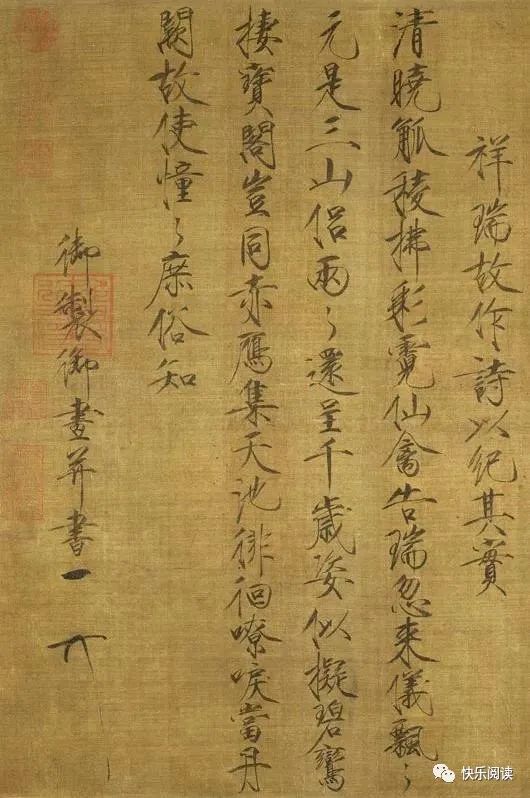 祥瑞故作詩以紀其實
清曉觚稜拂彩霓仙禽告瑞忽來儀飄〻
元是三山侶兩〻還呈千歲姿似擬碧鸞
棲寶閣豈同赤鴈集天池徘徊嘹唳當丹
闕故使憧〻庶俗知
御製御畫并書
快乐阅读